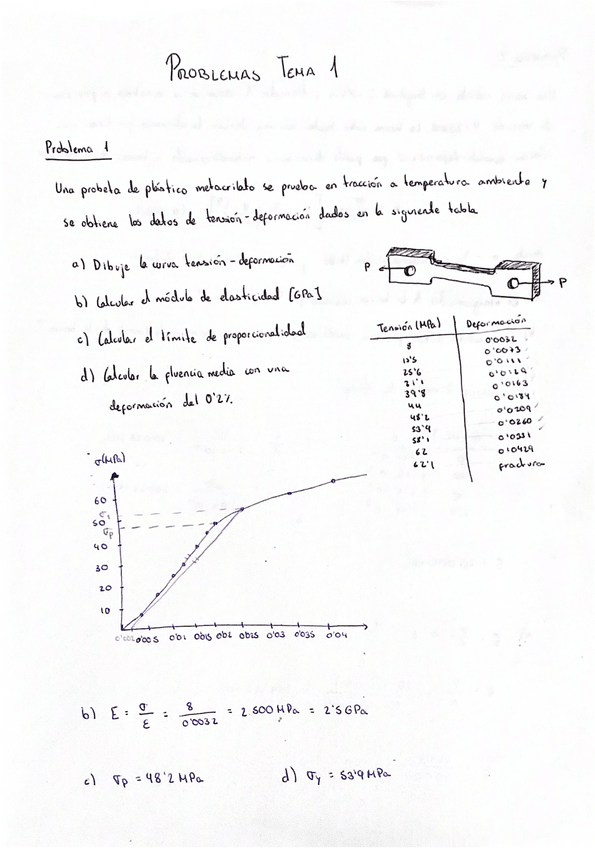 PROBLEMAS TEMA 1
Problema 1
Una probeta de plástico metacrilato se prueba en tracción a temperatura ambiente y
se obtiene los datos de tensión-deformación dados en la siguiente tabla
a) Dibuje la curva tensión-deformación
b) Calcular el módulo de elasticidad [GPa]
c) Calcular el límite de proporcionalidad
d) Calcular la fluencia media con una
deformación del 0'2%.
P P
Tensión (MPa) Deformación
8 0'0032
0'0073
25'6 0'0111
31'1 0'0129
39'8 0'0163
44 0'0184
48'2 0'0209
53'9 0'0260
58'1 0'0331
62 0'0429
62'1 fractura
σ(MPa)
60
50
σp
40
30
20
10
0'002 0'005 0'01 0'015 0'02 0'025 0'03 0'035 0'04
b) E = σ/ε = 8/0'0032 = 2.500 MPa = 2'5 GPa
c) σp = 48'2 MPa d) σy = 53'9 MPa